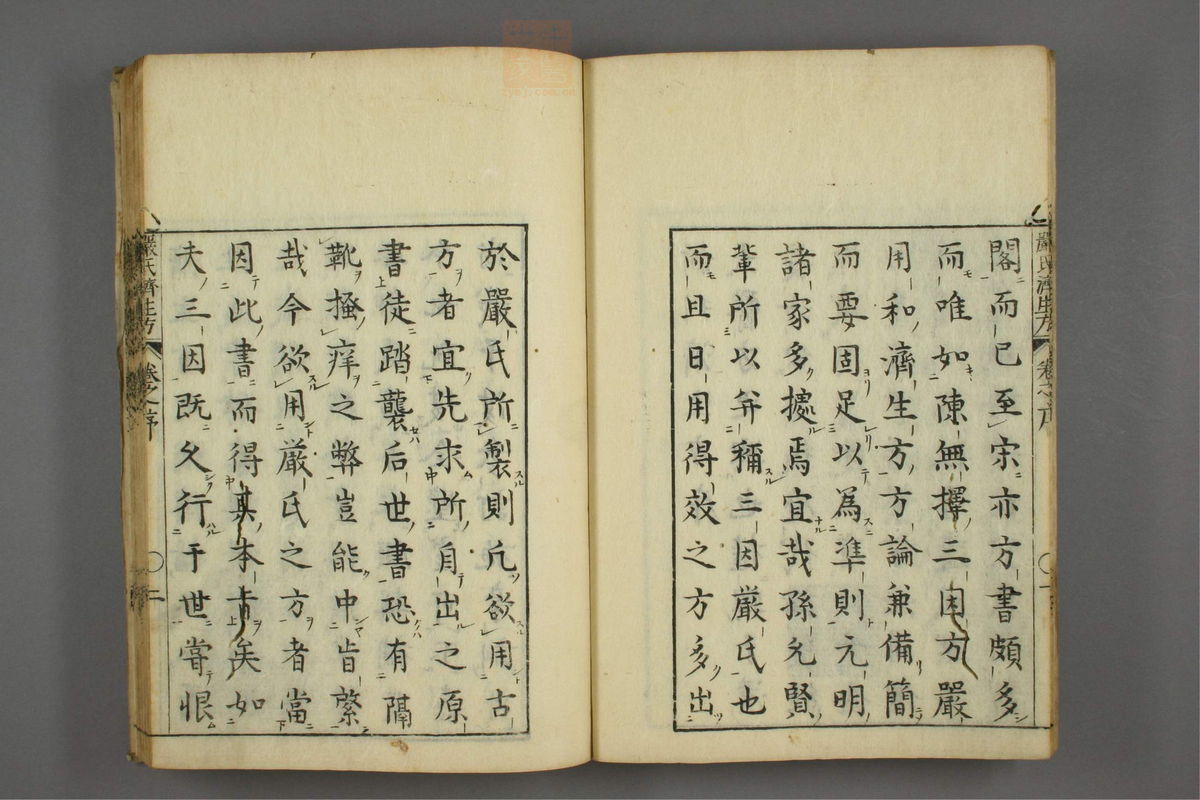 閣而已至宋亦方書頗多
而唯如陳無擇三因方嚴
用和濟生方方論兼備簡
而要固足以為準則元明
諸家多據焉宜哉孫允賢
輩所以并稱三因嚴氏也
而且日用得效之方多出
於嚴氏所製則凡欲用古
方者宜先求所自出之原
書徒踏襲后世書恐有隔
靴搔痒之弊豈能中肯綮
哉今欲用嚴氏之方者當
因此書而得其本旨矣如
夫三因既久行于世嘗恨
嚴氏濟生方 卷之序 二